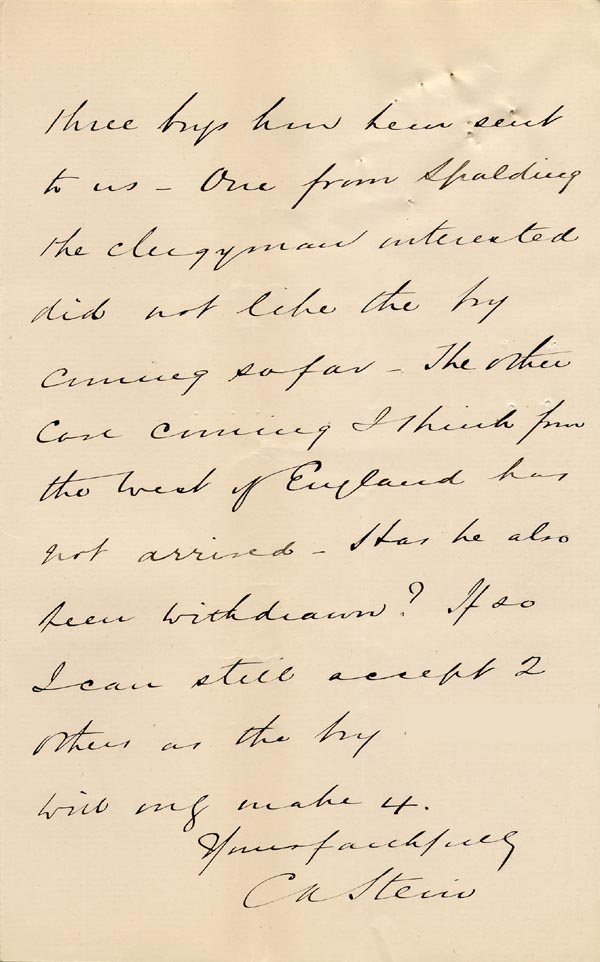 three boys have been sent
to us - One from Spalding
the clergyman interested
did not like the boy
coming so far - The other
case coming I think from
the West of England has
not arrived - Has he also
been withdrawn? If so
I can still accept 2
others as the boy
will only make 4.
Yours faithfully
C A Stein